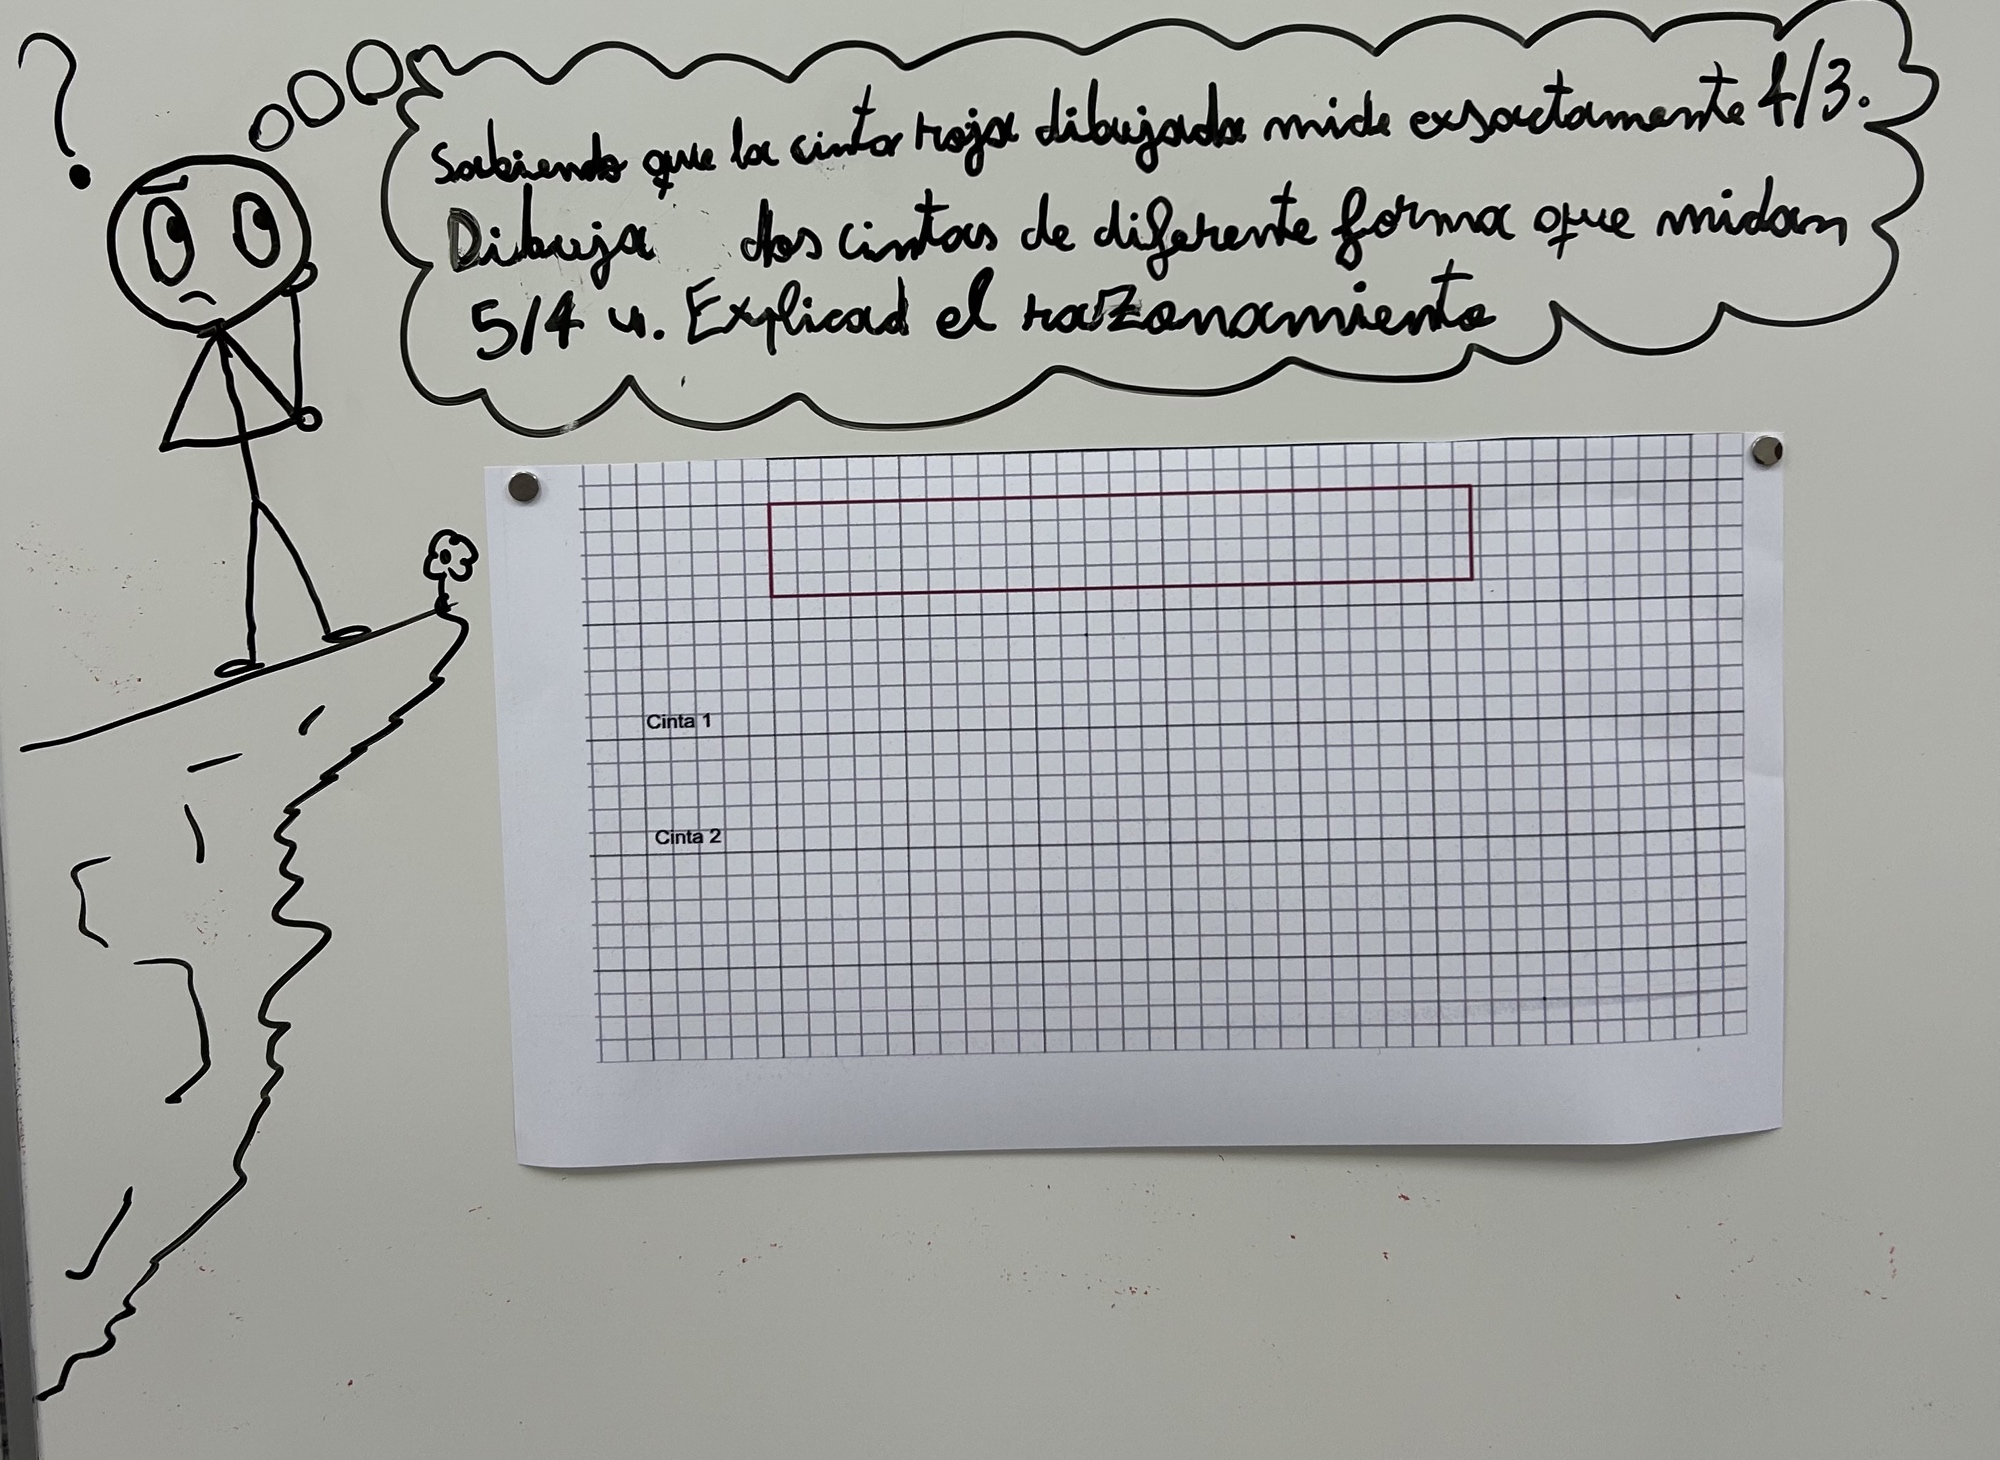 ?
Sabiendo que la cinta roja dibujada mide exsactamente 4/3.
Dibuja dos cintas de diferente forma que midan
5/4 u. Explicad el razonamiento
Cinta 1
Cinta 2